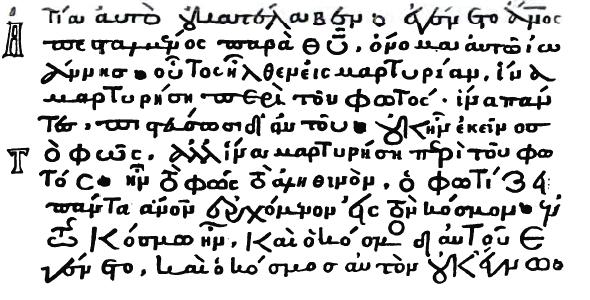 τία αὐτὸ οὐ κατέλαβεν· ἐγένετο ἄνος
ἀπεσταλμένος παρὰ θῦ, ὄνομα αὐτῶ ἰω
άννησ· οὗτος ἦλθεν εἰς μαρτυρίαν, ἵνα
μαρτυρήση περὶ τοῦ φωτός· ἵνα πάν
τες, πιστεύσωσι δι' αὐτοῦ· οὐκ ἦν ἐκεῖνοσ
τὸ φῶς, ἀλλ' ἵνα μαρτυρήση πρὶ τοῦ φω
τός· ἦν τὸ φῶς τὸ ἀληθινὸν, ὃ φωτίζει
πάντα ἄνον ἐρχόμενον εἰς τὸν κόσμον· ἐν
τῶ κόσμω ἦν, καὶ ὁ κόσμος δι' αὐτοῦ ἐ
γένετο, καὶ ὁ κόσμοσ αὐτὸν οὐκ ἔγνω·